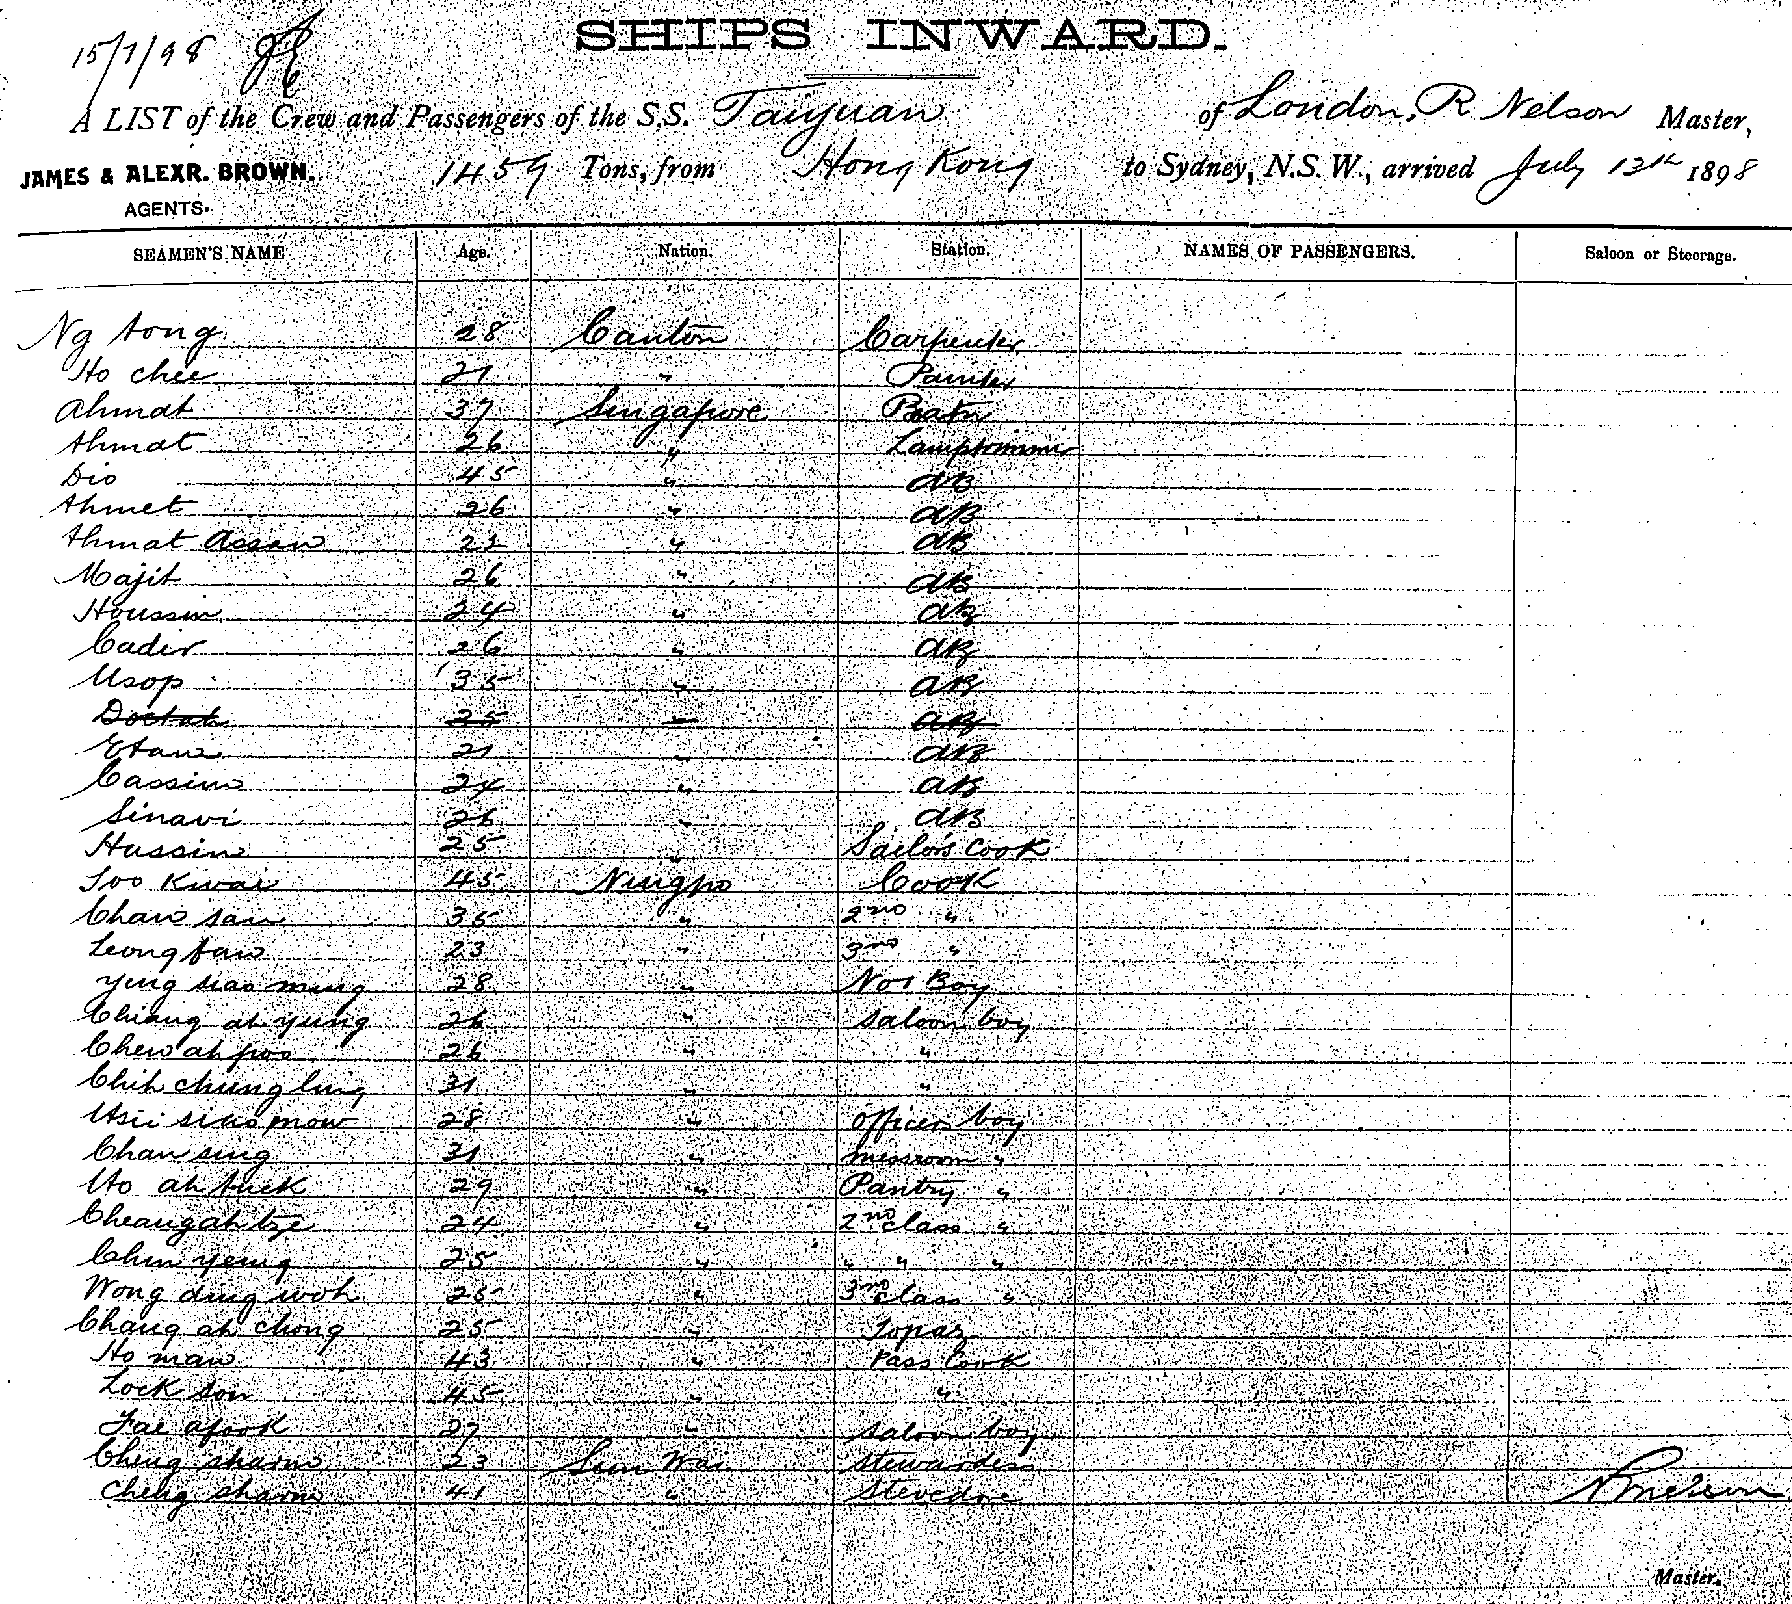 15/7/98
SHIPS INWARD.
A LIST of the Crew and Passengers of the S.S. Taiyuan of London, R Nelson Master,
JAMES & ALEXR. BROWN. 1459 Tons, from Hong Kong to Sydney, N.S.W., arrived July 12th 1898
AGENTS.
SEAMEN'S NAME Age. Nation. Station. NAMES OF PASSENGERS. Saloon or Steerage.
Ng tong 28 Canton Carpenter
Ho chee 21 " Painter
Ahmat 37 Singapore
Ahmat 26 " Lamptrimmer
Dio 45 " AB
Ahmet 26 " AB
Ahmat Assan 22 " AB
Majit 26 " AB
Houssin 24 " AB
Cadir 26 " AB
Usop 35 " AB
Doctah 35 " AB
Etam 21 " AB
Cassim 24 " AB
Sinavi 26 " AB
Hussin 25 " Sailors Cook
Soo Kwai 45 Ningpo Cook
Chan san 35 " 2nd "
Leong 23 " 3rd "
Ying siao ming 28 " No 1 Boy
Chiang ah yung 26 " Saloon boy
Chew ah poo 26 " "
Chih chung ling 31 " "
Hsii siao mow 28 " officers boy
Chan sing 31 " messroom "
Ho ah tuck 29 " Pantry "
Cheang ah tze 24 " 2nd class "
Chin yeung 25 " " " "
Wong ding woh 25 " 3rd class "
Chang ah chong 25 " Topaz
Ho man 43 " Pass Cook
Lock son 45 " "
27 " Saloon boy
Cheng sharm 23 Sun Wai stewardess
Cheng sharm 41 " Stevedore
Master.